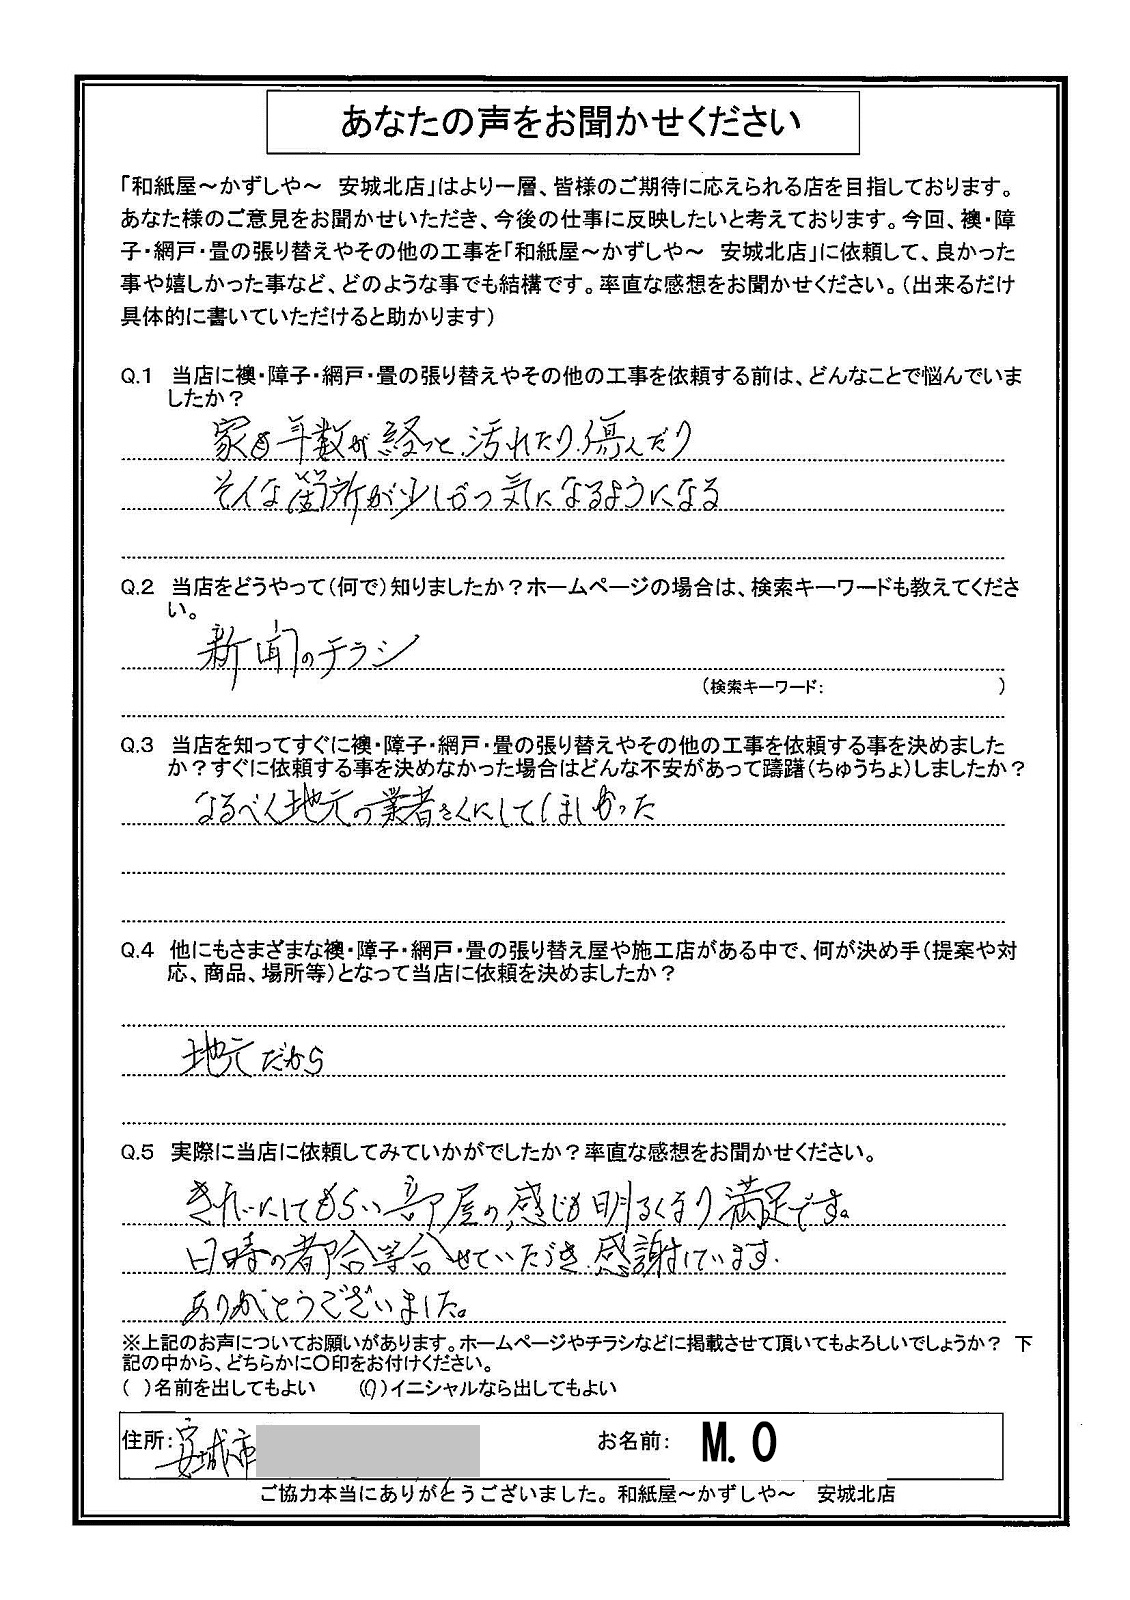 あなたの声をお聞かせください
「和紙屋～かずしや～　安城北店」はより一層、皆様のご期待に応えられる店を目指しております。
あなた様のご意見をお聞かせいただき、今後の仕事に反映したいと考えております。今回、襖・障
子・網戸・畳の張り替えやその他の工事を「和紙屋～かずしや～　安城北店」に依頼して、良かった
事や嬉しかった事など、どのような事でも結構です。率直な感想をお聞かせください。（出来るだけ
具体的に書いていただけると助かります）
Q.1　当店に襖・障子・網戸・畳の張り替えやその他の工事を依頼する前は、どんなことで悩んでいま
したか？
家も年数が経つと汚れたり傷んだり
そんな箇所が少しづつ気になるようになる
Q.2　当店をどうやって（何で）知りましたか？ホームページの場合は、検索キーワードも教えてくださ
い。
新聞のチラシ
（検索キーワード：　　　　　）
Q.3　当店を知ってすぐに襖・障子・網戸・畳の張り替えやその他の工事を依頼する事を決めました
か？すぐに依頼する事を決めなかった場合はどんな不安があって躊躇（ちゅうちょ）しましたか？
なるべく地元の業者さんにしてほしかった
Q.4　他にもさまざまな襖・障子・網戸・畳の張り替え屋や施工店がある中で、何が決め手（提案や対
応、商品、場所等）となって当店に依頼を決めましたか？
地元だから
Q.5　実際に当店に依頼してみていかがでしたか？率直な感想をお聞かせください。
きれいにしてもらい部屋の感じも明るくなり満足です。
日時の都合等合せていただき感謝しています。
ありがとうございました。
※上記のお声についてお願いがあります。ホームページやチラシなどに掲載させて頂いてもよろしいでしょうか？　下
記の中から、どちらかに○印をお付けください。
（　）名前を出してもよい　　（○）イニシャルなら出してもよい
住所：安城市　　お名前：　M. O
ご協力本当にありがとうございました。和紙屋～かずしや～　安城北店